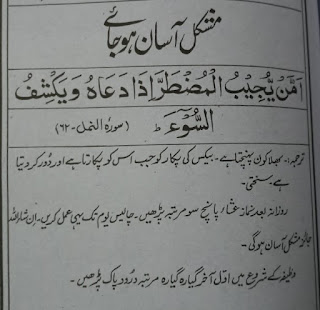 مشکل آسان ہو جائے
اَمَّنْ يُّجِيْبُ الْمُضْطَرَّ اِذَا دَعَاهُ وَيَكْشِفُ
السُّوْٓءَ ط (سورۃ النمل -۶۲)
ترجمہ:۔ بھلا کون پہنچتا ہے۔ بیکس کی پکار کو جب اس کو پکارتا ہے اور دور کر دیتا
ہے۔ سختی۔
روزانہ بعد نماز عشاء پانچ سو مرتبہ پڑھیں۔ چالیس یوم تک یہی عمل کریں۔ ان شاء اللہ
جائز مشکل آسان ہو گی۔
وظیفہ کے شروع میں اول آخر گیارہ گیارہ مرتبہ درود پاک پڑھیں۔